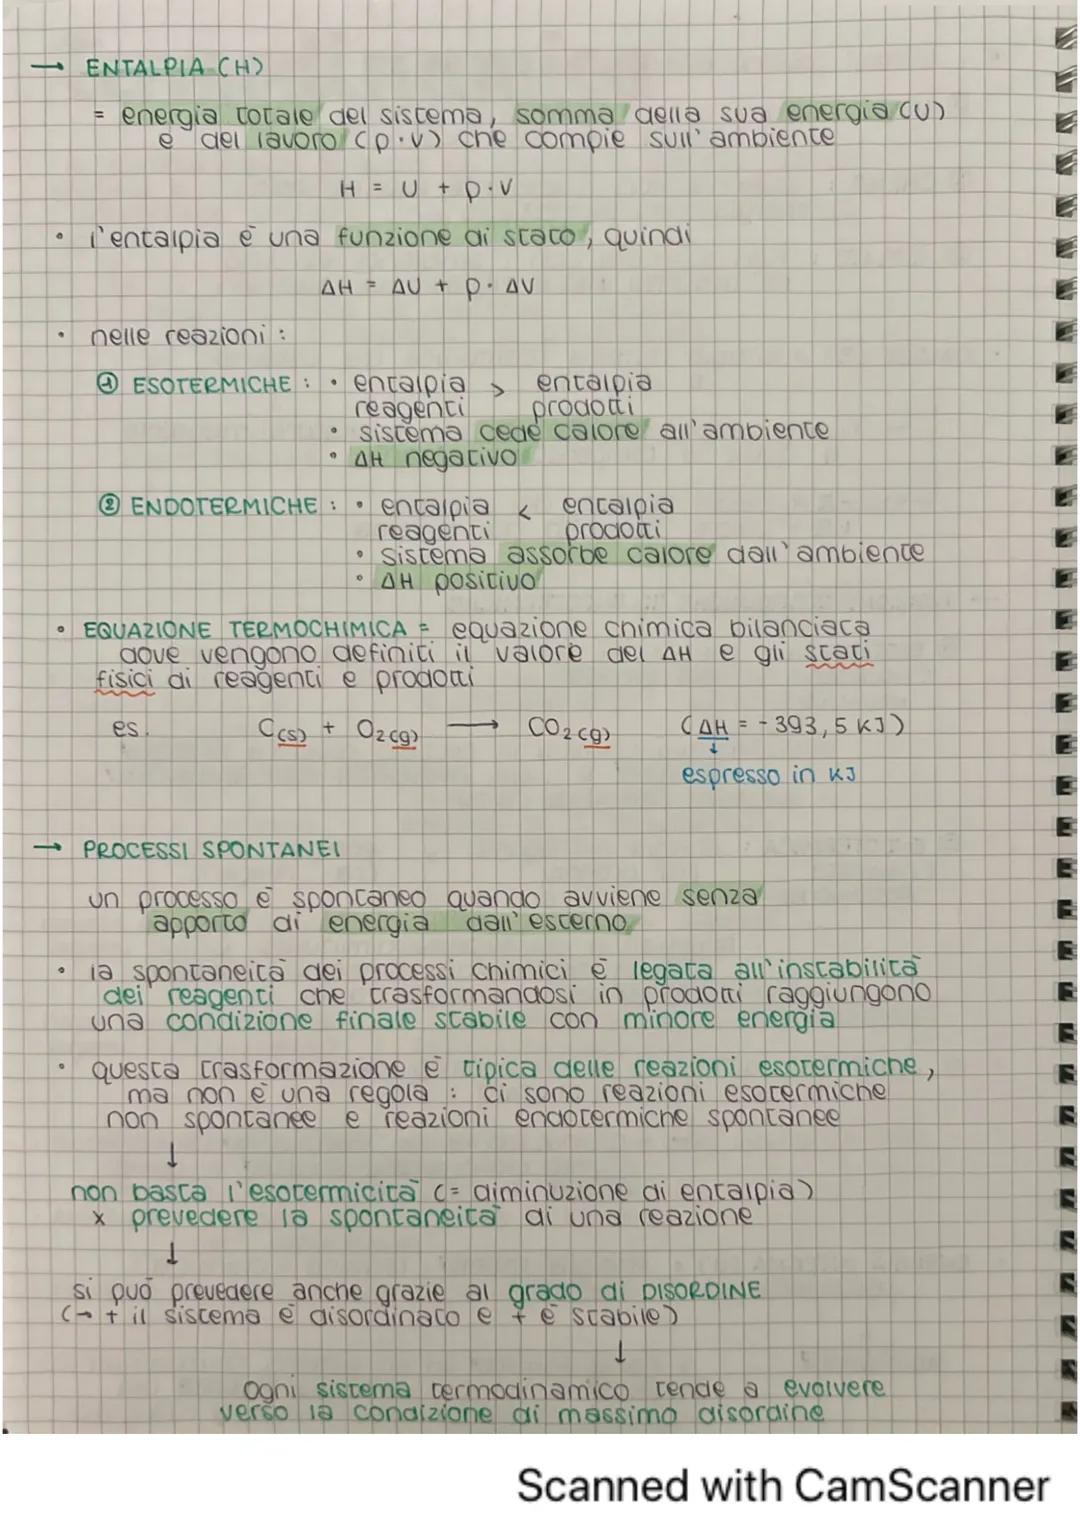 → ENTALPIA (H)
= energia totale del sistema, somma della sua energia (U)
e del lavoro (p·V) che compie sull'ambiente
H = U + p·V
• l'entalpia è una funzione di stato, quindi
ΔH = ΔU + p·ΔV
• nelle reazioni:
① ESOTERMICHE: • entalpia > entalpia
reagenti prodotti
• sistema cede calore all'ambiente
• ΔH negativo
② ENDOTERMICHE: • entalpia < entalpia
reagenti prodotti
• sistema assorbe calore dall'ambiente
• ΔH positivo
• EQUAZIONE TERMOCHIMICA = equazione chimica bilanciata
dove vengono definiti il valore del ΔH e gli stati
fisici di reagenti e prodotti
es. C(s) + O2(g) → CO2(g) (ΔH = -393,5 KJ)
↓
espresso in KJ
→ PROCESSI SPONTANEI
un processo è spontaneo quando avviene senza
apporto di energia dall'esterno
• la spontaneità dei processi chimici è legata all'instabilità
dei reagenti che trasformandosi in prodotti raggiungono
una condizione finale stabile con minore energia
• questa trasformazione è tipica delle reazioni esotermiche,
ma non è una regola: ci sono reazioni esotermiche
non spontanee e reazioni endotermiche spontanee
↓
non basta l'esotermicità (= diminuzione di entalpia)
x prevedere la spontaneità di una reazione
↓
si può prevedere anche grazie al grado di DISORDINE
(→ + il sistema è disordinato e + è stabile)
↓
ogni sistema termodinamico tende a evolvere
verso la condizione di massimo disordine
Scanned with CamScanner